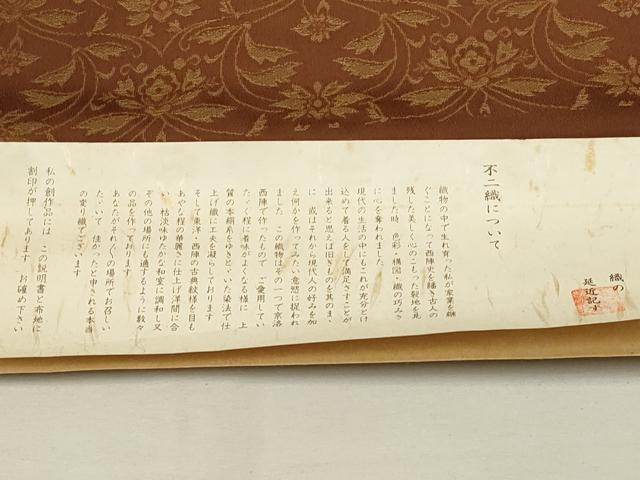 不二織について
織物の中で生れ育った私が家業を継
ぐことになって西陣史を繙き古人の
残した美しく心のこもった裂地を見
ました時 色彩・構図・織の巧みさ
に心を奪われました
現代の生活の中にもこれが充分とけ
込めて着る人をして満足さすことが
出来ると思えば旧きものを其のまゝ
に 或はそれから現代人の好みを加
え何かを作ってみたい意慾に捉われ
ました この織物はその一つで京洛
西陣で作ったもので ご愛用してい
たゞく程に着味がよくなる様に 上
質の本絹糸をゆきとゞいた染法で仕
上げ織に工夫を凝らしております
そして東洋・西陣の古典紋様を目も
あやな程の華麗さに仕上げ洋間に合
い 枯淡味ゆたかな和室に調和し又
その他の場所にも適するように数々
の品を作って居ります
あなたがそれ〲の場所でお召しい
たゞいて 佳かったと申される本当
の変り織でございます
私の創作品には この説明書と布地に
割印が押してあります お確め下さい
織の
延近記す